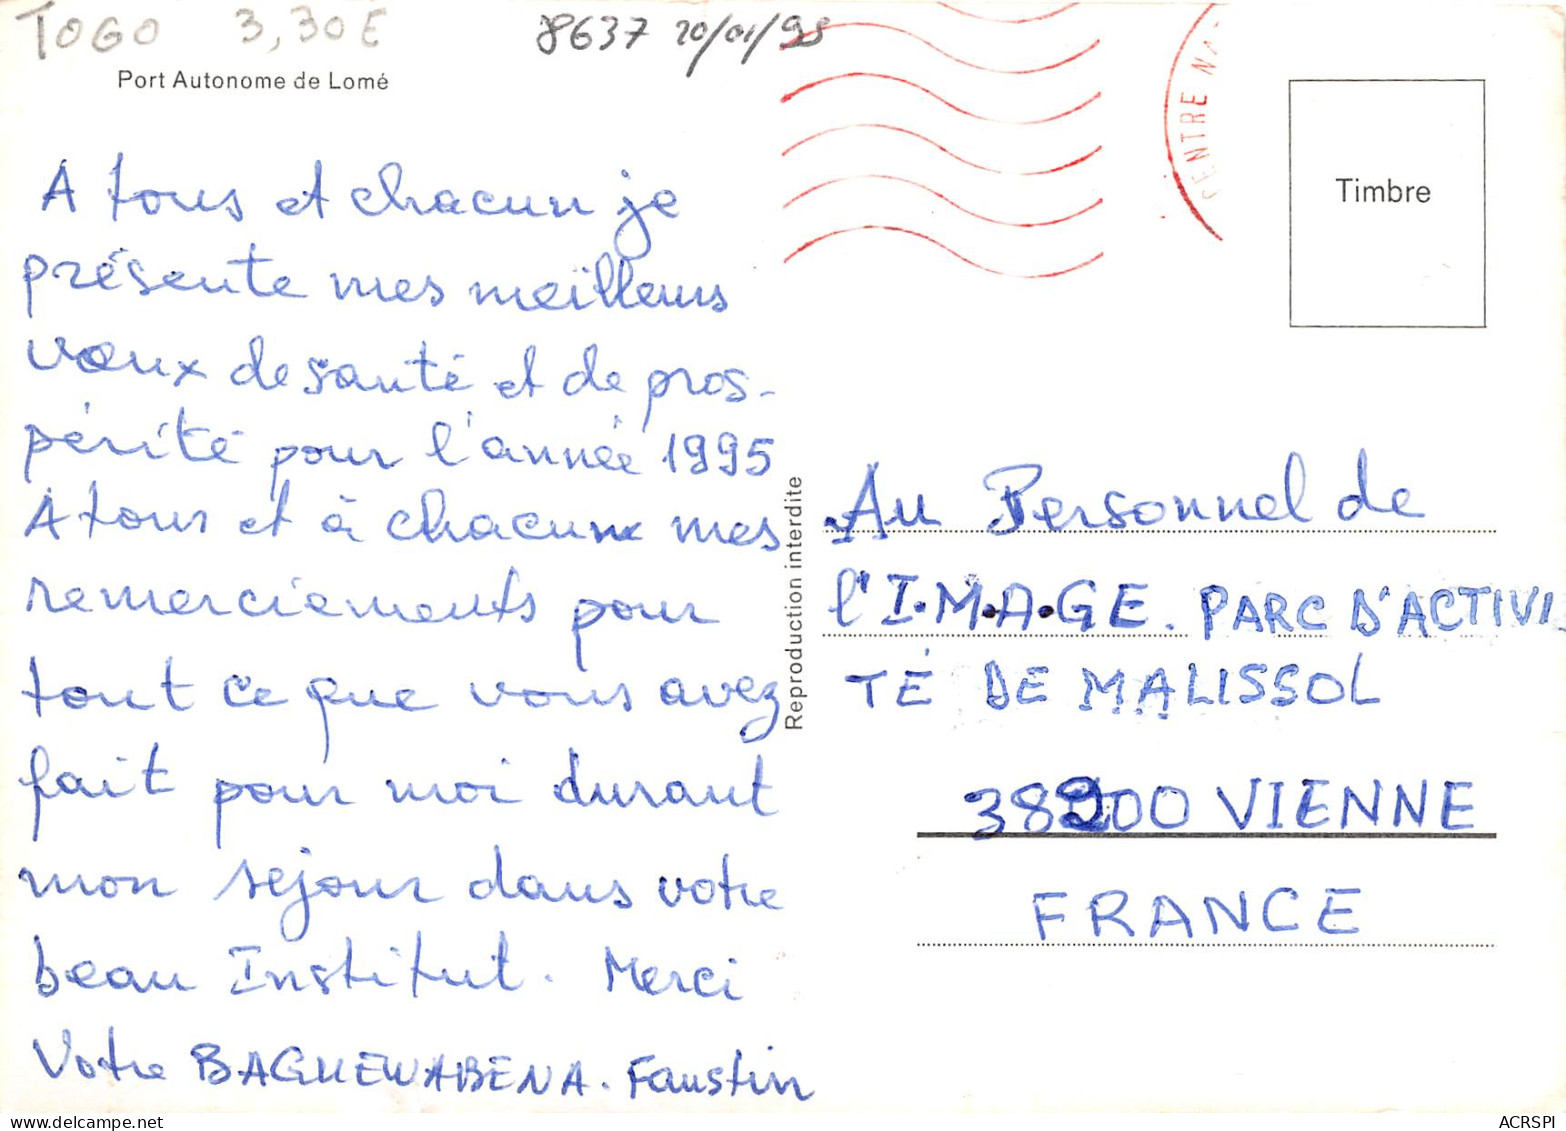 TOGO 3,30E 8637 20/01/98
Port Autonome de Lomé
CENTRE NA
Timbre
A tous et chacun je
présente mes meilleurs
vœux de santé et de pros-
périté pour l'année 1995
A tous et à chacun mes
remerciements pour
tout ce que vous avez
fait pour moi durant
mon sejour dans votre
beau Institut. Merci
Votre BAGUEWABENA. Faustin
Reproduction interdite
Au Personnel de
l'I.M.A.GE. PARC D'ACTIVI
TÉ DE MALISSOL
38200 VIENNE
FRANCE
ACRSPI